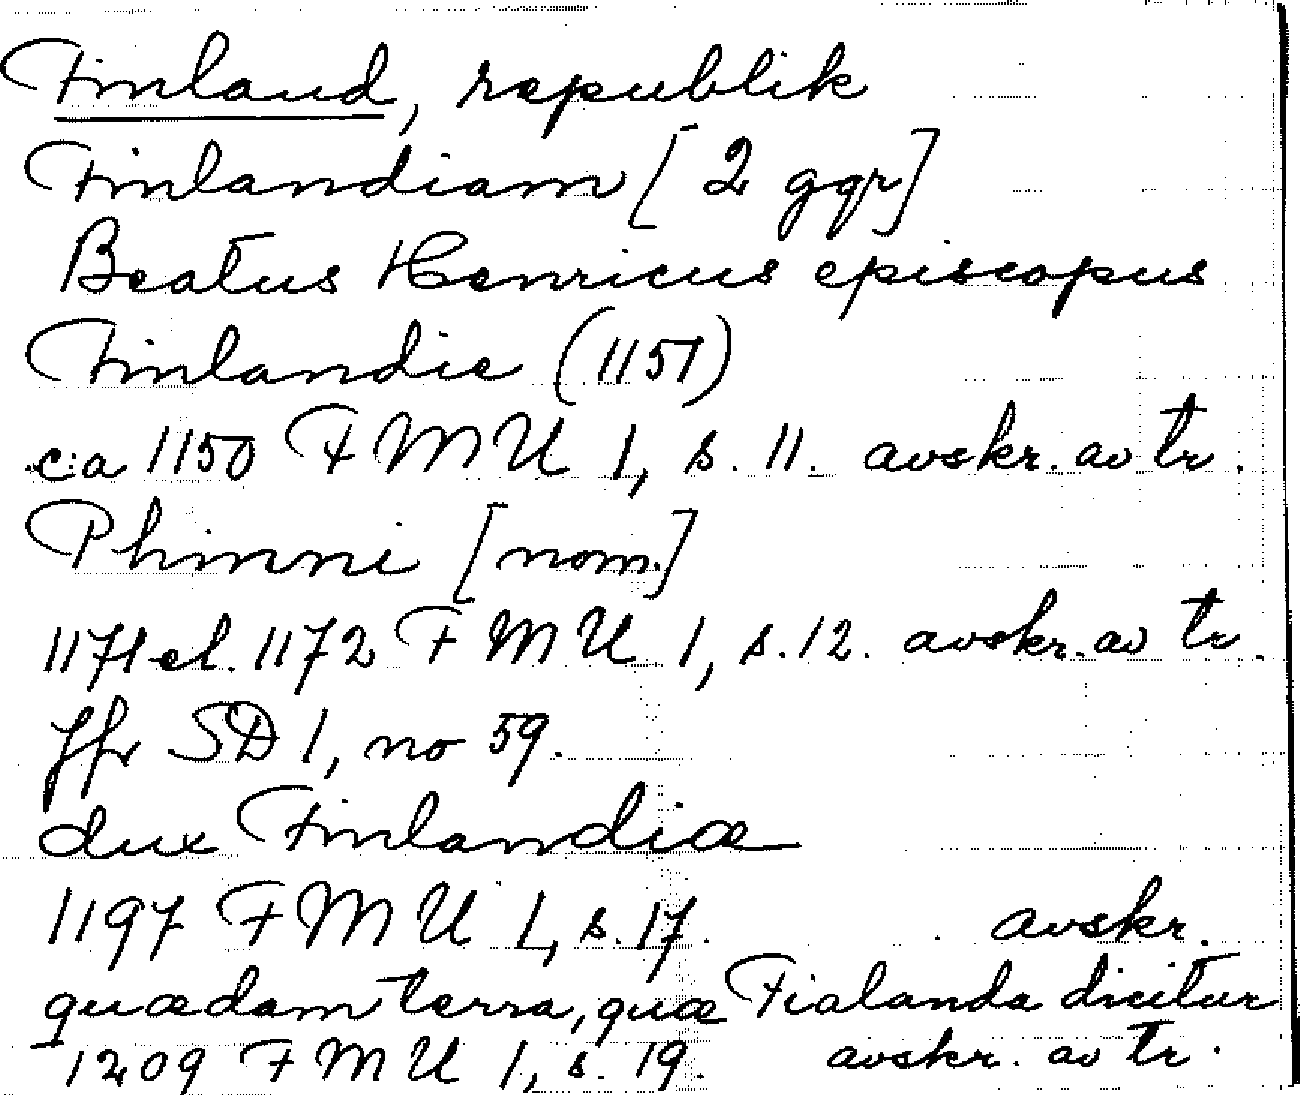 Finland, republik
Finlandiam [2 ggr]
Beatus Henricus episcopus
Finlandie (1151)
c:a 1150 FMU 1, s. 11. avskr. av tr.
Phinni [nom.]
1171 el. 1172 FMU 1, s. 12. avskr. av tr.
Jfr SD 1, no 59.
dux Finlandiæ
1197 FMU 1, s. 17. avskr.
quædam terra, quæ Fialanda dicitur
1209 FMU 1, s. 19. avskr. av tr.